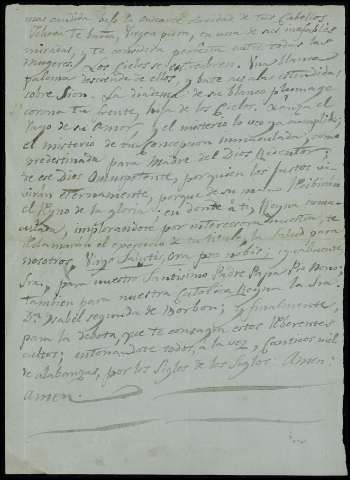 mas candida bajo la suave de tus Cabellos,
Jehová te baña, Virgen pura, en una de sus inefables
miradas, y te considera perfecta entre todas las
Mugeres. Los Cielos se entreabren. Una blanca
paloma desciende de ellos, y bate sus alas estendidas
sobre Sion. La diadema de su blanco plumage
corona tu frente, hija de los Cielos. el
rayo de su amor, y el misterio lo veo ya cumplido;
el misterio de tu Concepcion inmaculada, como
predestinada para Madre del Dios Redentor;
de ese Dios Omnipotente, por quien los Justos vi-
virán eternamente, porque de su mano recibirán
el Reyno de la gloria: en donde á ti, Reyna inma-
culada, implorandote por intercesora nuestra, te
el ejercicio de tu titulo, la salud para
nosotros, Virgo Salutis, ora pro nobis; igualmente,
Sra., para nuestro Santisimo Padre Papa Pio Nono;
tambien para nuestra Catolica Reyna la Sra.
Dª. Isabel segunda de Borbon; y finalmente,
para la devota, que te consagra estos reverentes
cultos; entonandote todos, a la vez, Canticos mil
de alabanzas, por los Siglos de los Siglos. Amen.
Amen.